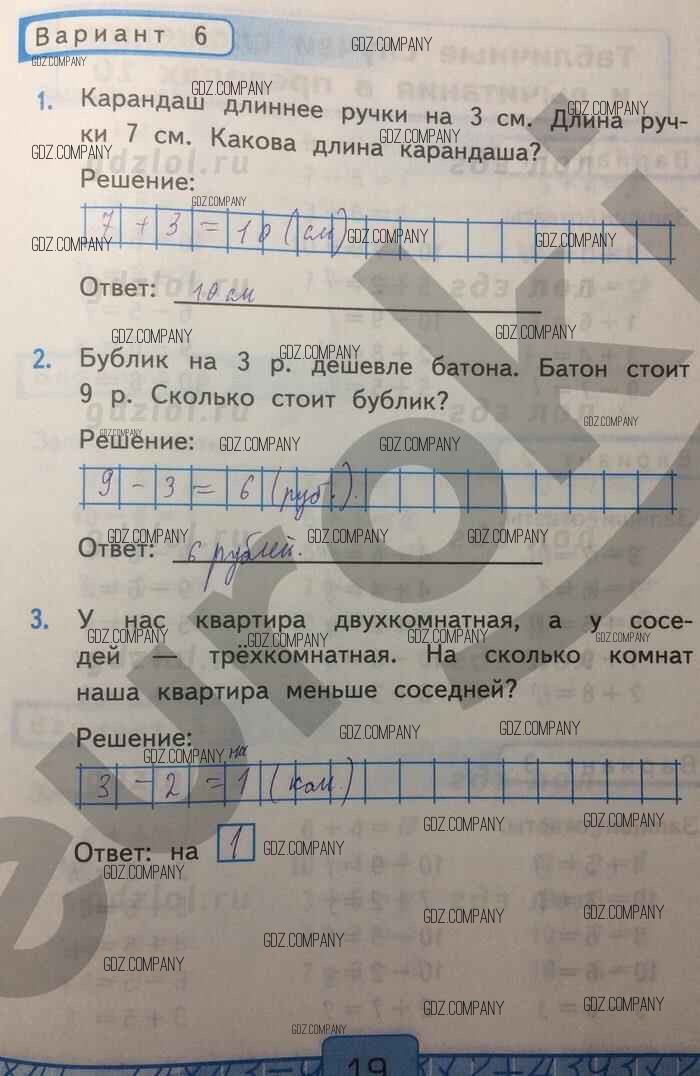 Вариант 6
1. Карандаш длиннее ручки на 3 см. Длина руч-
ки 7 см. Какова длина карандаша?
Решение:
7 + 3 = 10 (см)
Ответ: 10 см
2. Бублик на 3 р. дешевле батона. Батон стоит
9 р. Сколько стоит бублик?
Решение:
9 - 3 = 6 (руб.).
Ответ: 6 рублей.
3. У нас квартира двухкомнатная, а у сосе-
дей — трёхкомнатная. На сколько комнат
наша квартира меньше соседней?
Решение:
на
3 - 2 = 1 (ком.)
Ответ: на 1
19
GDZ.COMPANY
gdzlol.ru
euroki